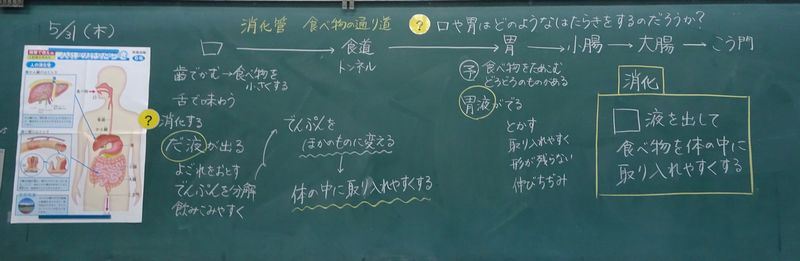 5/31（木）
消化管 食べ物の通り道
? 口や胃はどのようなはたらきをするのだろうか?
口 → 食道 → 胃 → 小腸 → 大腸 → こう門
トンネル
歯でかむ→食べ物を
小さくする
舌で味わう
? 消化する
だ液が出る
よごれをおとす
でんぷんを分解
飲みこみやすく
でんぷんを
ほかのものに変える
↓
体の中に取り入れやすくする
予 食べ物をためこむ
どうどうのものがある
胃液がでる
とかす
取り入れやすく
形が残らない
伸びちぢみ
消化
□液を出して
食べ物を体の中に
取り入れやすくする
人の消化管